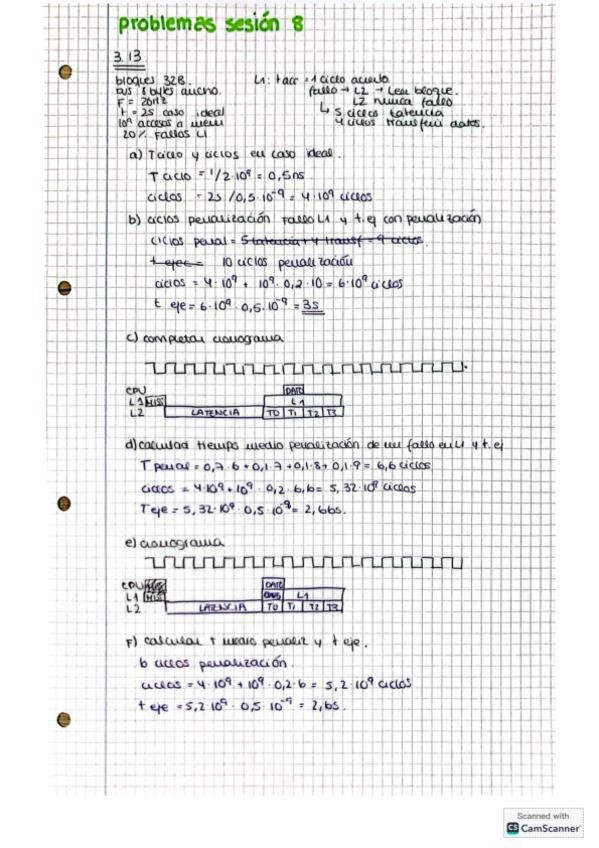 problemas sesión 8
3.13
bloques 32B.
bus 8 bytes ancho.
F = 2GHz
t = 2s caso ideal
10⁹ accesos a mem
20% Fallos L1
L1: tacc = 1 ciclo acierto
fallo → L2 → Leu bloque.
L2 nunca fallo
↳ 5 ciclos latencia
4 ciclos transferir datos.
a) Tciclo y ciclos en caso ideal.
T ciclo = 1/2·10⁹ = 0,5ns
ciclos = 2s / 0,5·10⁻⁹ = 4·10⁹ ciclos
b) ciclos penalización Fallo L1 y t.ej con penalización
ciclos penal = 5 latencia + 4 transf = 9 ciclos.
t ejec = 10 ciclos penalización
ciclos = 4·10⁹ + 10⁹·0,2·10 = 6·10⁹ ciclos
t eje = 6·10⁹·0,5·10⁻⁹ = 3s
c) completar cronograma
CPU DATO
L1 MISS L1
L2 LATENCIA T0 T1 T2 T3
d) calculad tiempo medio penalización de un fallo en L1 y t.ej
T penal = 0,7·6 + 0,1·7 + 0,1·8 + 0,1·9 = 6,6 ciclos
ciclos = 4·10⁹ + 10⁹·0,2·6,6 = 5,32·10⁹ ciclos
T eje = 5,32·10⁹·0,5·10⁻⁹ = 2,66s.
e) cronograma
CPU DATO
L1 MISS DATO L1
L2 LATENCIA T0 T1 T2 T3
F) calcular t medio penaliz y t eje.
6 ciclos penalización.
ciclos = 4·10⁹ + 10⁹·0,2·6 = 5,2·10⁹ ciclos
t eje = 5,2·10⁹·0,5·10⁻⁹ = 2,6s.
Scanned with
CS CamScanner